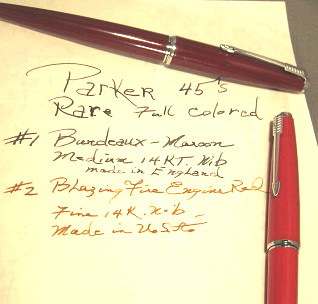 Parker 45's
Rare Full colored
#1 Burdeaux - Maroon
Medium 14 KT. Nib
made in England
#2 Blazing Fire Engine Red
Fine 14K. nib -
Made in